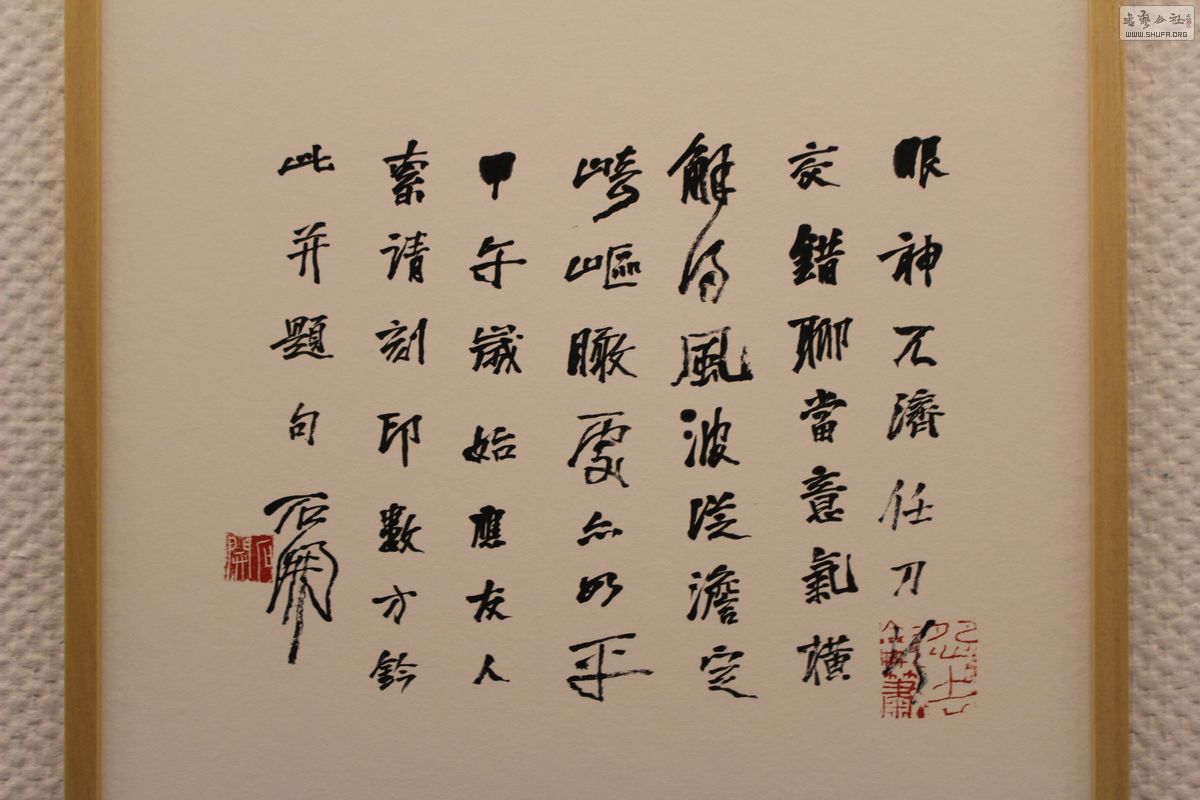 眼神不濟任刀行
交錯聊當意氣橫
解得風波從澹定
崎嶇瞰處亦如平
甲午歲始應友人
索請刻印數方鈐
此并題句 石開
石開
書藝公社
WWW.SHUFA.ORG